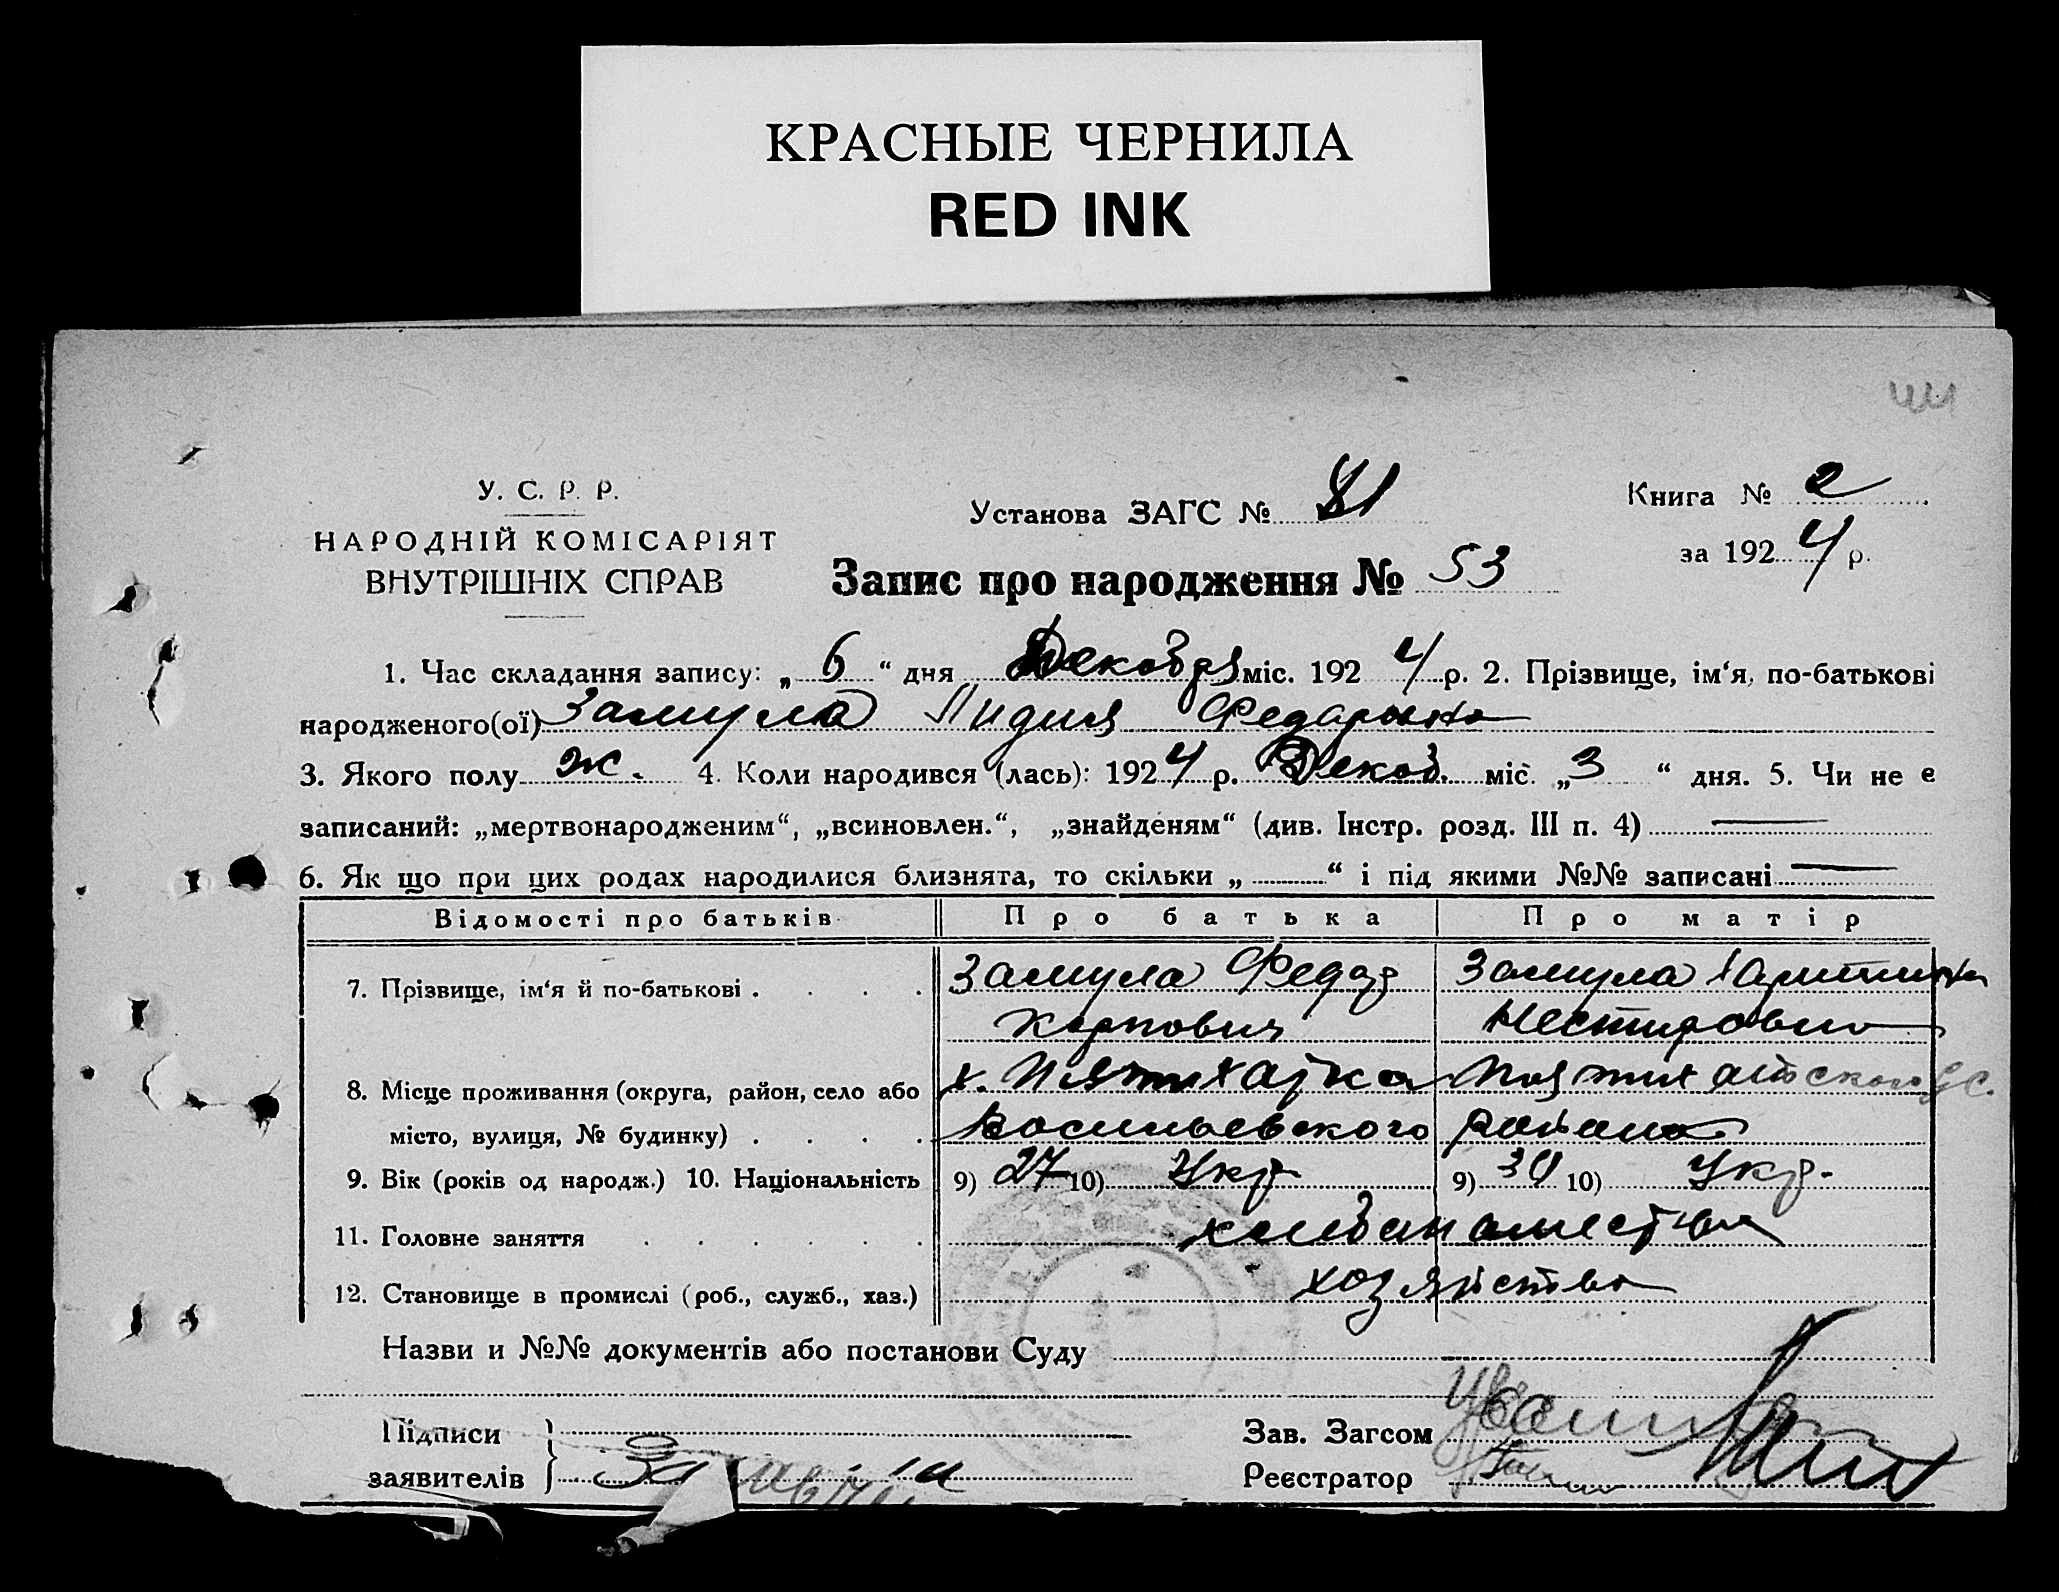 КРАСНЫЕ ЧЕРНИЛА
RED INK
У. С. Р. Р.
НАРОДНІЙ КОМІСАРІЯТ
ВНУТРІШНІХ СПРАВ
Установа ЗАГС № 81
Книга № 2
за 1924 р.
Запис про народження № 53
1. Час складання запису: „ 6 “ дня Декабря міс. 1924 р. 2. Прізвище, ім‘я, по-батькові
народженого(ої) Замула Лидия Федаровна
3. Якого полу ж. 4. Коли народився (лась): 1924 р. Декаб. міс. „ 3 “ дня. 5. Чи не є
записаний: „мертвонародженим“, „всиновлен.“, „знайденям“ (див. Інстр. розд. III п. 4) —
6. Як що при цих родах народилися близнята, то скільки „ “ і під якими №№ записані —
Відомості про батьків Про батька Про матір
7. Прізвище, ім‘я й по-батькові . . . . Замула Федар Замула
Карпович
8. Місце проживання (округа, район, село або х. Пятихатка
місто, вулиця, № будинку) . . . . Васильевского района
9. Вік (років од народж.) 10. Національність 9) 27 10) Укр 9) 30 10) Укр.
11. Головне заняття . . . . . .
12. Становище в промислі (роб., служб., хаз.) хозяйство
Назви и №№ документів або постанови Суду
Підписи
заявителів
Зав. Загсом
Реєстратор